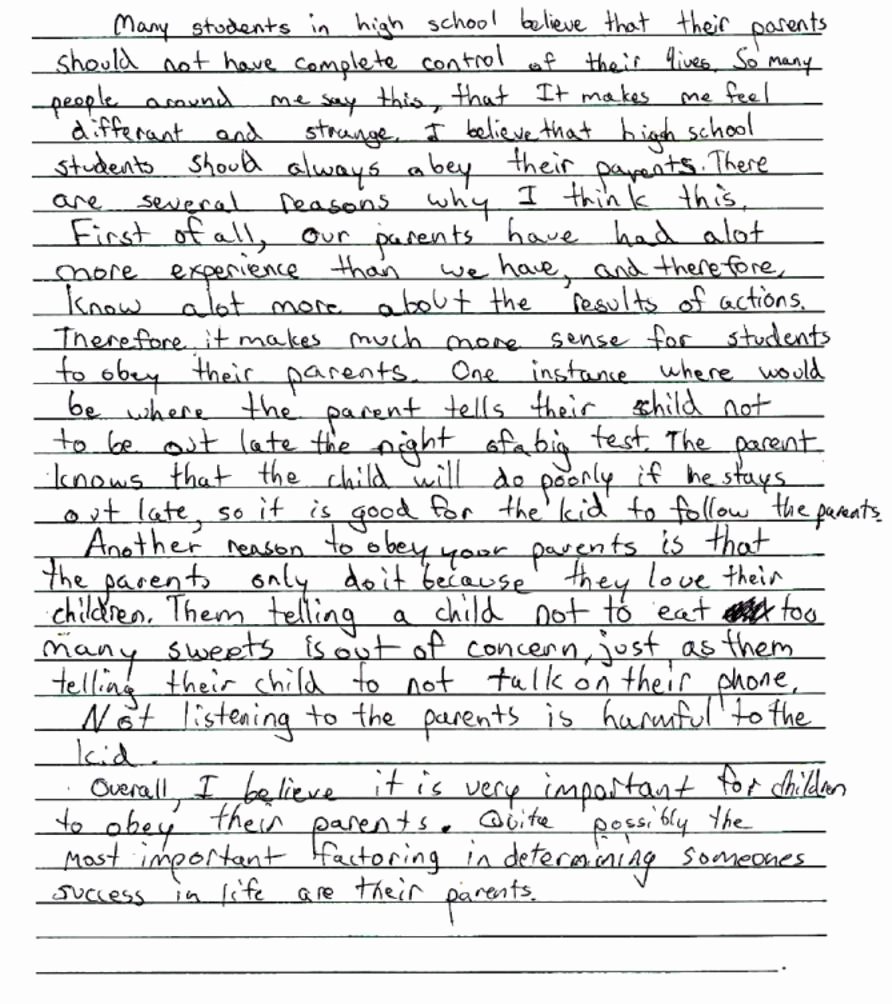 Many students in high school believe that their parents
should not have complete control of their lives. So many
people around me say this, that It makes me feel
differant and strange. I believe that high school
students should always abey their parents. There
are several reasons why I think this.
First of all, our parents have had alot
more experience than we have, and therefore,
know alot more about the results of actions.
Therefore it makes much more sense for students
to obey their parents. One instance where would
be where the parent tells their child not
to be out late the night of a big test. The parent
knows that the child will do poorly if he stays
out late, so it is good for the kid to follow the parents.
Another reason to obey your parents is that
the parents only do it because they love their
children. Them telling a child not to eat too
many sweets is out of concern, just as them
telling their child to not talk on their phone.
Not listening to the parents is harmful to the
kid.
Overall, I believe it is very important for children
to obey their parents. Quite possibly the
most important factoring in determining someones
success in life are their parents.